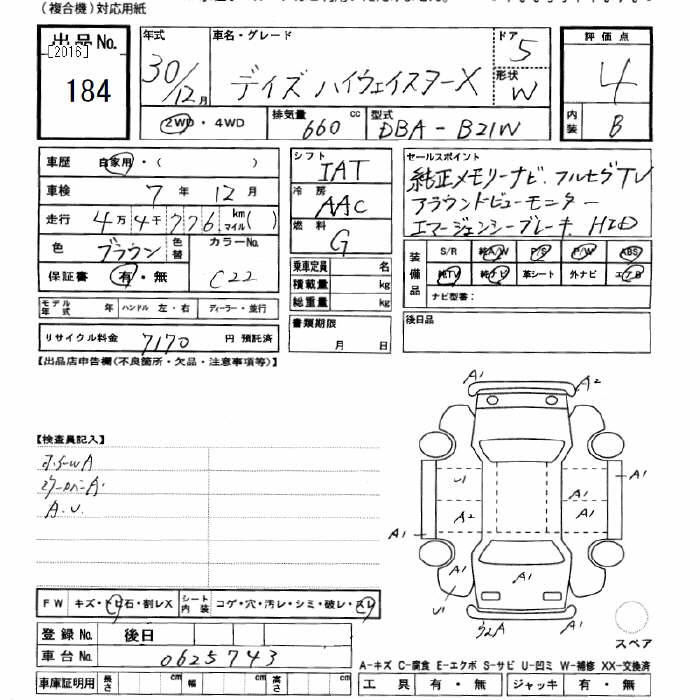 (複合機)対応用紙
出品No.
[2016]
184
年式
30/12月
車名・グレード
デイズ ハイウェイスターX
ドア
5
形状
W
評価点
4
内装
B
2WD・4WD
排気量
660 cc
型式
DBA-B21W
車歴 自家用・( )
車検 7年 12月
走行 4万4千776 km マイル( )
色 ブラウン 色替
カラーNo.
C22
保証書 有・無
モデル年式 年 ハンドル 左・右 ディーラー・並行
リサイクル料金 7170 円 預託済
シフト
IAT
冷房
AAC
燃料
G
乗車定員 名
積載量 kg
総重量 kg
書類期限
月 日
セールスポイント
純正メモリーナビ.フルセグTV
アラウンドビューモニター
エマージェンシーブレーキ. HID
装備品
S/R 純A/W P/S P/W ABS
純TV 純ナビ 革シート 外ナビ エアB
ナビ型番:
後日品
【出品店申告欄(不良箇所・欠品・注意事項等)】
【検査員記入】
A.U.
A1
A2
U1
A1
A1
A2
A1
A1
A1
A1
U1
スペア
FW キズ・トビ石・割レX
シート内装 コゲ・穴・汚レ・シミ・破レ・スレ
登録No. 後日
車台No. 0625743
車庫証明用 長さ cm 幅 cm 高さ cm
A-キズ C-腐食 E-エクボ S-サビ U-凹ミ W-補修 XX-交換済
工具 有・無 ジャッキ 有・無